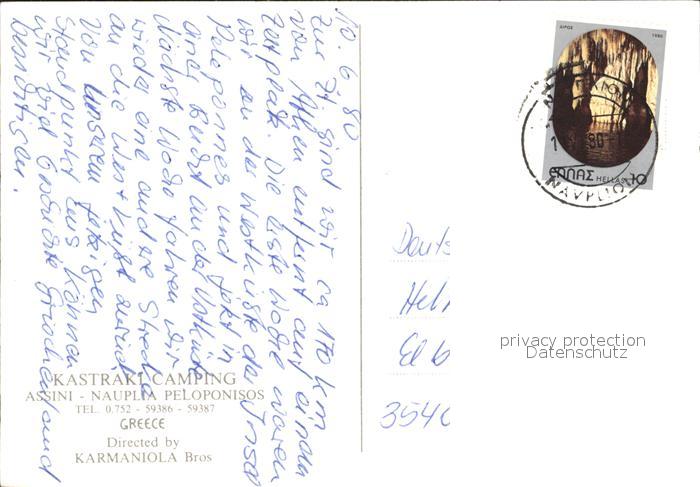 10.6.80
Zur Zt sind wir ca 170 km
von Athen entfernt auf einem
Zeltplatz. Die erste Woche waren
wir an der Westküste der Insel
Peloponnes und jetzt in
einer Bucht an der Ostküste
Nächste Woche fahren wir
wieder eine andere Strecke
an die Westküste zurück
Von unserem jetzigen
Standpunkt aus können
wir viel Griechenland
besichtigen.
KASTRAKI CAMPING
ASSINI - NAUPLIA PELOPONISOS
TEL. 0.752 - 59386 - 59387
GREECE
Directed by
KARMANIOLA Bros
ΔΙΡΟΣ 1980
ΕΛΛΑΣ HELLAS 10
ΝΑΥΠΛΙΟ
80
Deuts
Hel
El
3540
privacy protection
Datenschutz